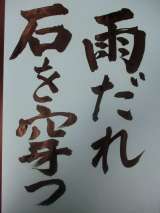 雨だれ
石を穿つ